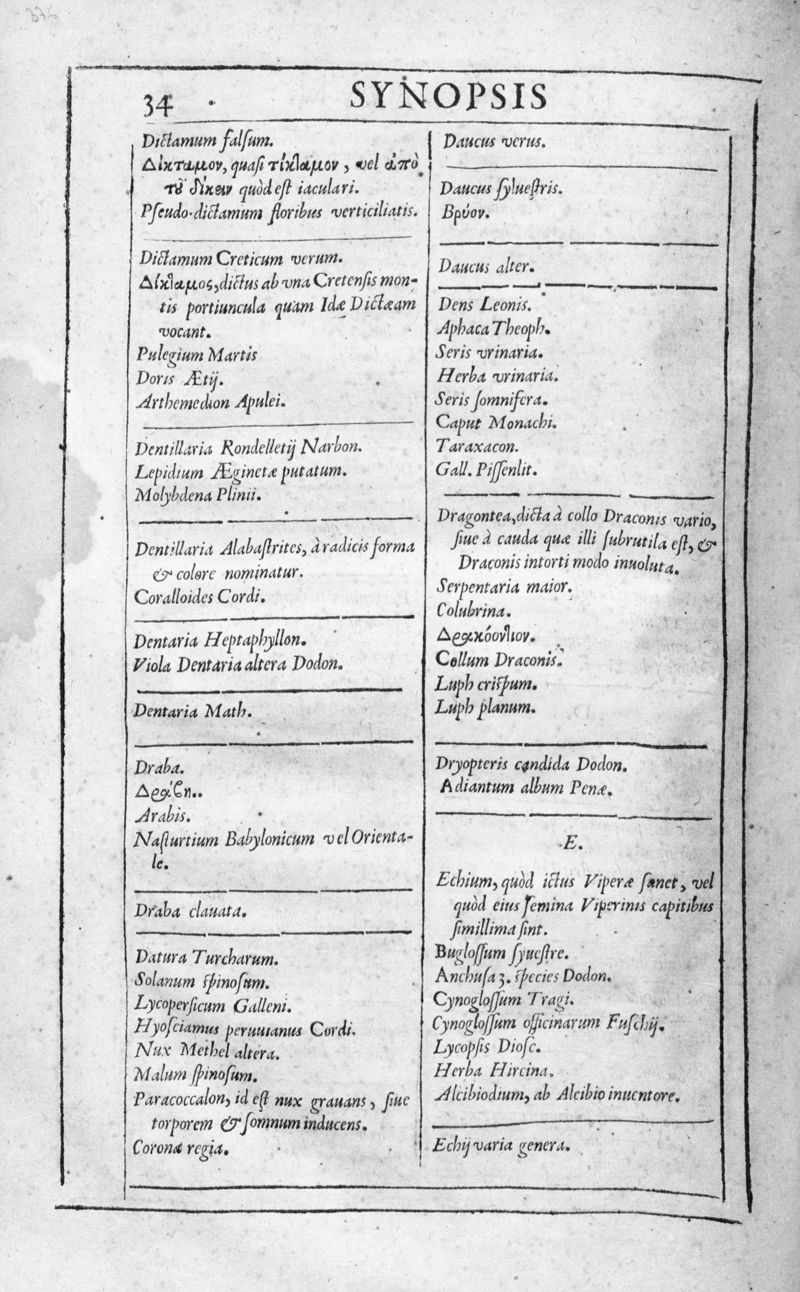 376
34
SYNOPSIS
Dictamum falsum.
Δίκταμον, quasi τίκταμον, vel ἀπὸ
τοῦ δίκειν quòd est iaculari.
Pseudo-dictamum floribus verticiliatis.
Dictamum Creticum verum.
Δίκταμος, dictus ab vna Cretensis mon-
tis portiuncula quam Idæ Dictæam
vocant.
Pulegium Martis
Doris Ætij.
Arthemedion Apulei.
Dentillaria Rondelletij Narbon.
Lepidium Æginetæ putatum.
Molybdena Plinii.
Dentillaria Alabastrites, à radicis forma
& colore nominatur.
Coralloides Cordi.
Dentaria Heptaphyllon.
Viola Dentaria altera Dodon.
Dentaria Math.
Draba.
Δράβη..
Arabis.
Nasturtium Babylonicum vel Orienta-
le.
Draba clauata.
Datura Turcharum.
Solanum spinosum.
Lycopersicum Galleni.
Hyosciamus peruuianus Cordi.
Nux Methel altera.
Malum spinosum.
Paracoccalon, id est nux grauans, siue
torporem & somnum inducens.
Corona regia.
Daucus verus.
Daucus syluestris.
Βρύον.
Daucus alter.
Dens Leonis.
Aphaca Theoph.
Seris vrinaria.
Herba vrinaria.
Seris somnifera.
Caput Monachi.
Taraxacon.
Gall. Pissenlit.
Dragontea, dicta à collo Draconis vario,
siue à cauda quæ illi subrutila est, &
Draconis intorti modo inuoluta.
Serpentaria maior.
Colubrina.
Δρακόοντιον.
Collum Draconis.
Luph crispum.
Luph planum.
Dryopteris candida Dodon.
Adiantum album Penæ.
E.
Echium, quòd ictus Viperæ sanet, vel
quòd eius semina Viperinis capitibus
simillima sint.
Buglossum syuestre.
Anchusa 3. species Dodon.
Cynoglossum Tragi.
Cynoglossum officinarum Fuschij.
Lycopsis Diosc.
Herba Hircina.
Alcibiodium, ab Alcibio inuentore.
Echij varia genera.